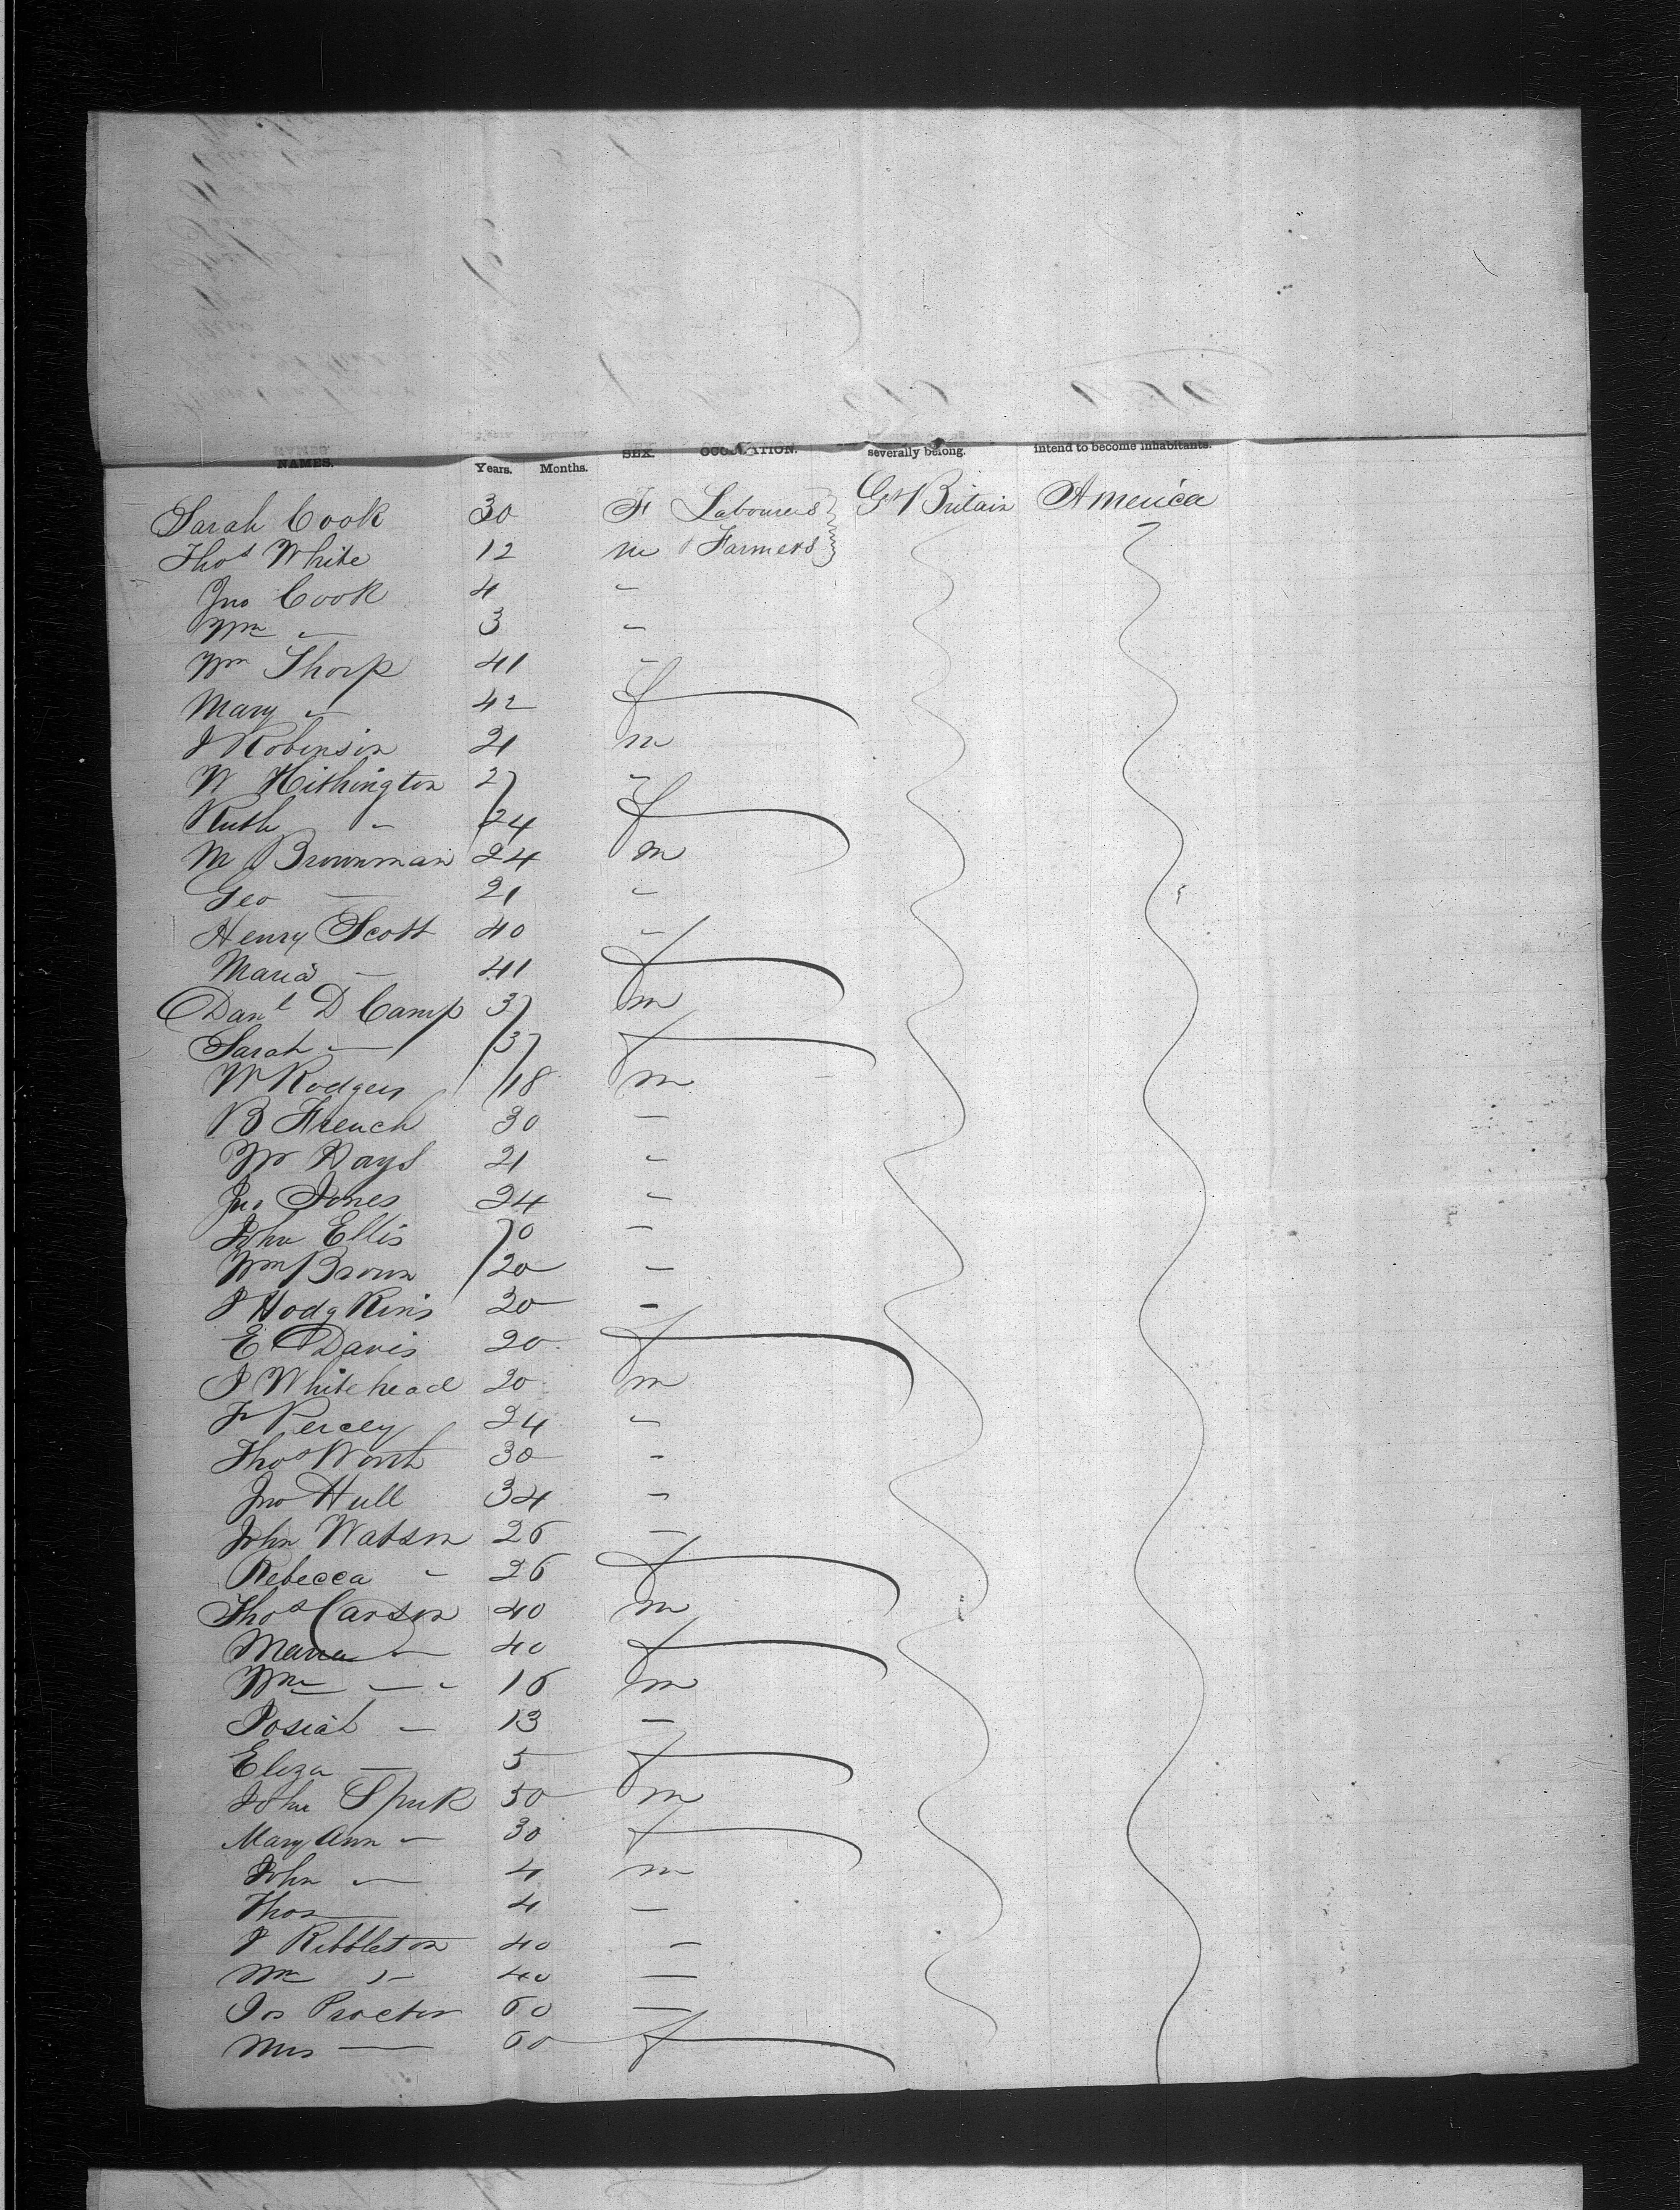 NAMES. Years. Months. SEX. OCCUPATION. severally belong. intend to become inhabitants.
Sarah Cook 30 F Labourers Gt Britain America
Thos White 12 m Farmers
Jno Cook 4 -
Wm - 3 -
Wm Thorp 41 -
Mary - 42 f
J Robinson 21 m
W Hithington 27 -
Ruth - 24 f
M Brownman 24 m
Geo - 21 -
Henry Scott 40 -
Maria - 41 f
Danl D Camp 37 m
Sarah - 37 f
W Rodgers 18 m
B French 30 -
W Days 21 -
Jno Jones 24 -
John Ellis 70 -
Wm Brown 20 -
J Hodgkins 20 -
E Davis 20 f
J Whitehead 20 m
F Percey 24 -
Thos Worth 30 -
Jno Hull 34 -
John Watson 26 -
Rebecca - 26 f
Thos Carson 40 m
Maria - 40 f
Wm - - 16 m
Josiah - 13 -
Eliza - 5 f
John Spurk 30 m
Mary Ann - 30 f
John - 4 m
Thos - 4 -
J Ribbleton 40 -
Wm - 40 -
Jos Procter 60 -
Mrs - 60 f